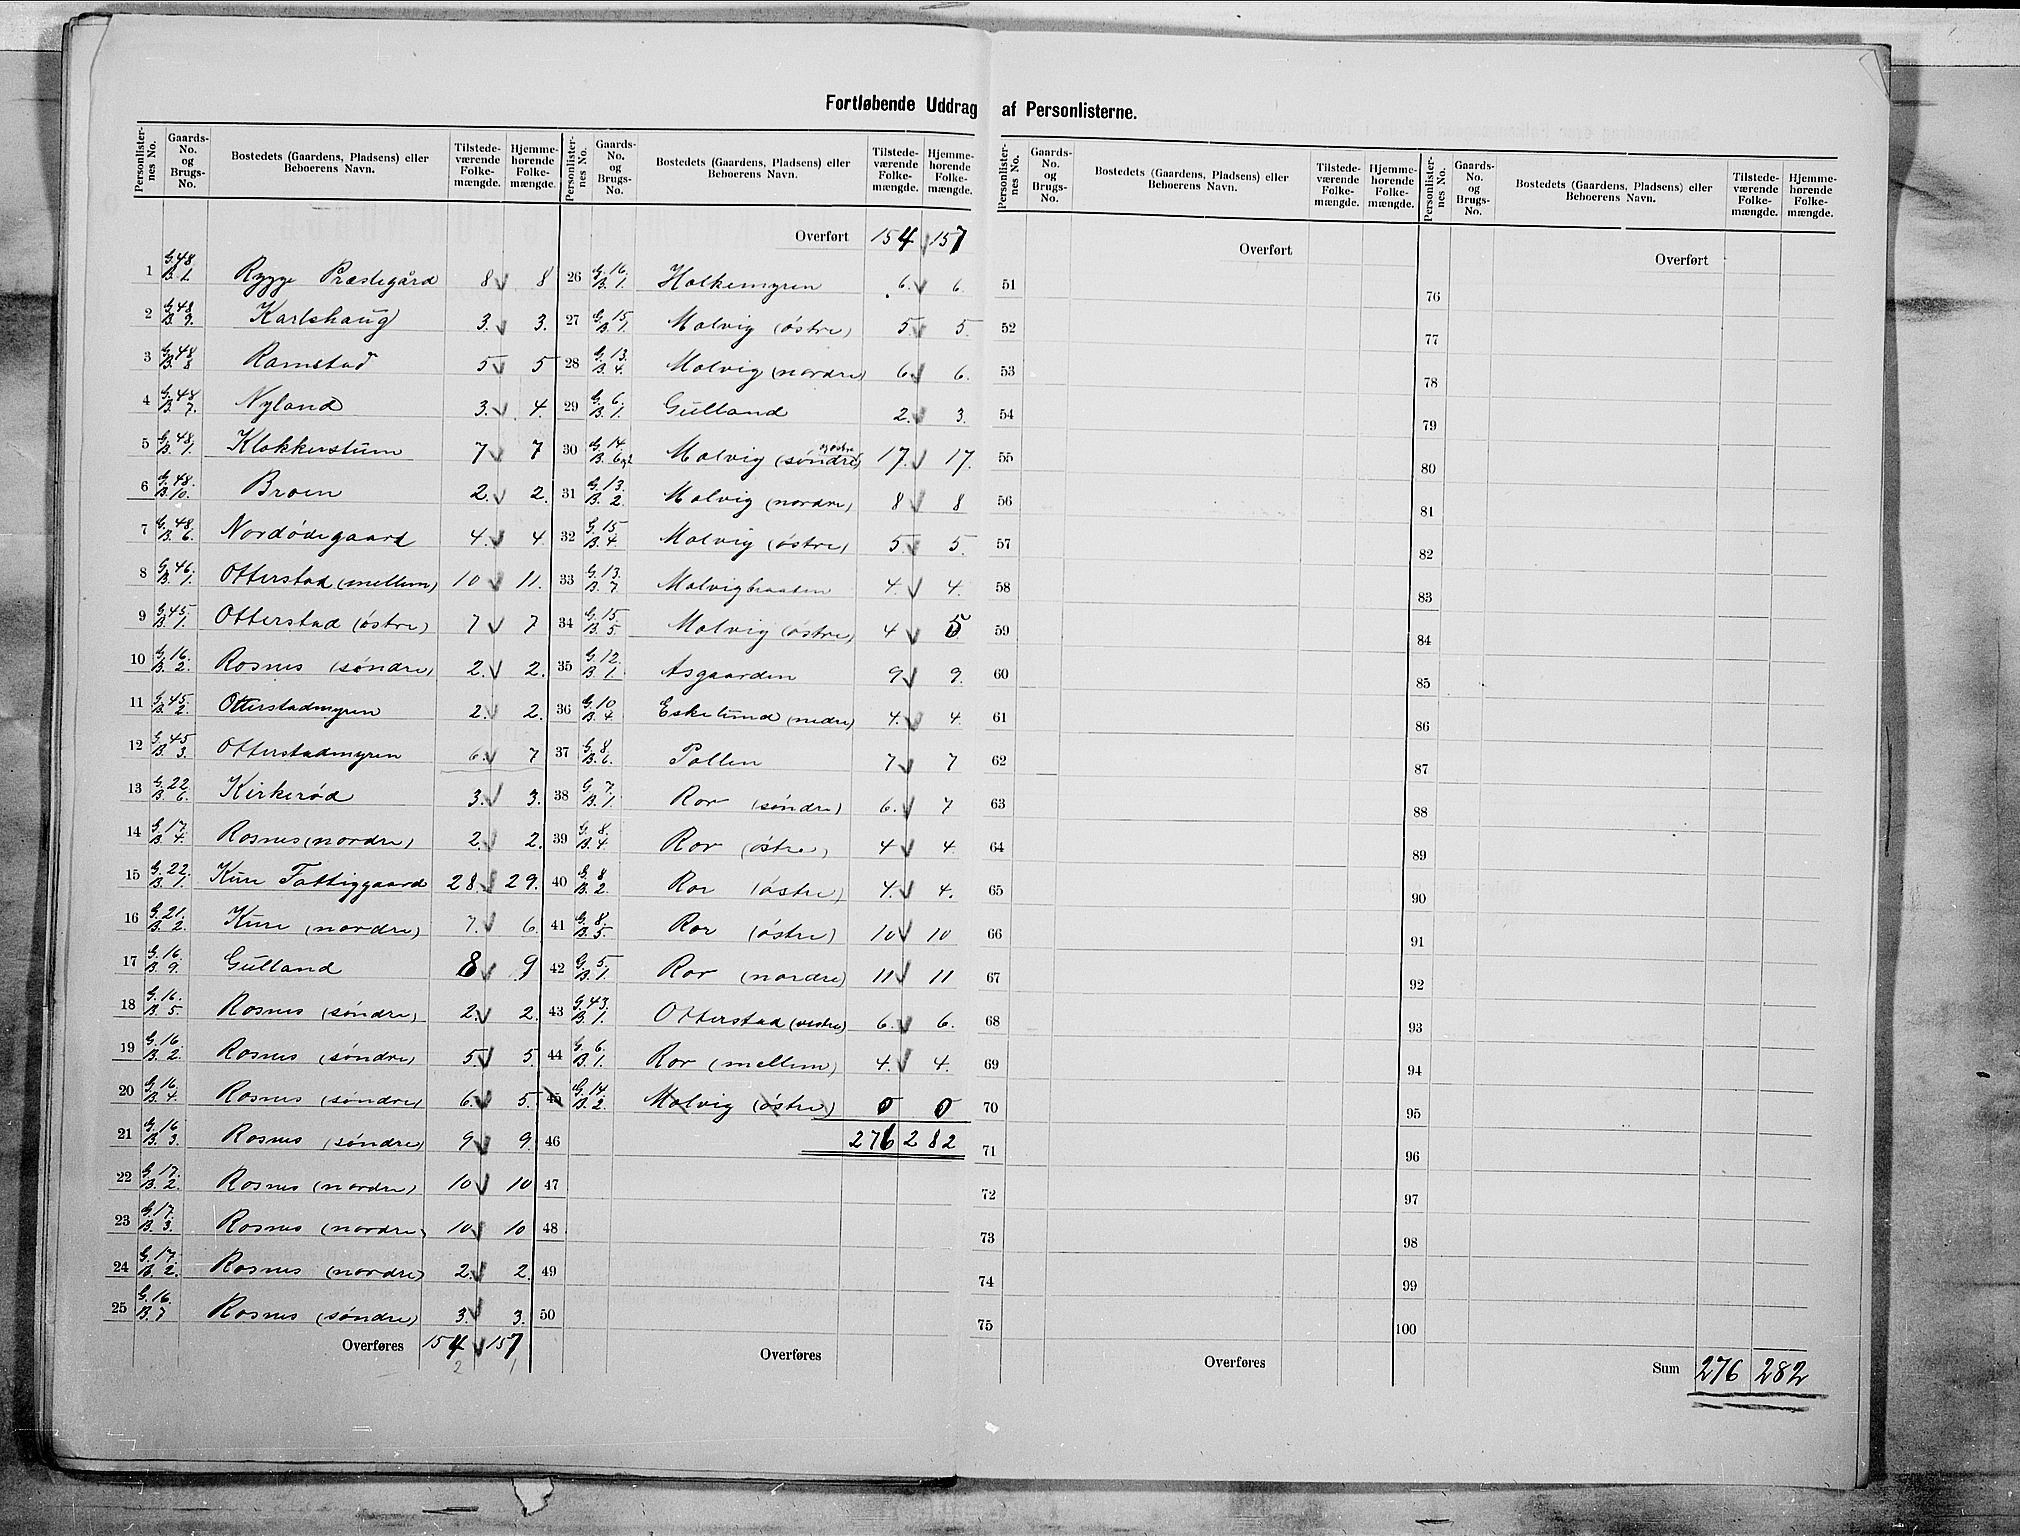 Fortløbende Uddrag af Personlisterne.
Personlister-nes No. Gaards-No. og Brugs-No. Bostedets (Gaardens, Pladsens) eller Beboerens Navn. Tilstede-værende Folke-mængde. Hjemme-hørende Folke-mængde.
1 G. 48. B. 1. Rygge Præstegård 8 8
2 G. 48 B. 9. Karlshaug 3. 3.
3 G. 48 B. 8 Ramstad 5 5
4 G. 48 B. 7. Nyland 3. 4.
5 G. 48. B. 1. Klokkerstuen 7 7
6 G. 48. B. 10. Broen 2. 2.
7 G. 48. B. 6. Nordødegaard 4. 4.
8 G. 46. B. 1. Otterstad (mellem) 10 11.
9 G. 45. B. 1. Otterstad (østre) 7 7
10 G. 16. B. 2. Rosnes (søndre) 2. 2.
11 G. 45. B. 2. Otterstadmyren 2. 2.
12 G. 45 B. 3. Otterstadmyren 6. 7
13 G. 22. B. 6. Kirkerød 3. 3.
14 G. 17. B. 4. Rosnes (nordre) 2. 2.
15 G. 22. B. 1. Kure Fattiggaard 28. 29.
16 G. 21. B. 2. Kure (nordre) 7. 6.
17 G. 16. B. 9. Gulland 8 9
18 G. 16. B. 5. Rosnes (søndre) 2. 2.
19 G. 16. B. 2. Rosnes (søndre) 5. 5
20 G. 16. B. 4. Rosnes (søndre) 6. 5.
21 G. 16 B. 3. Rosnes (søndre) 9 9.
22 G. 17. B. 2. Rosnes (nordre) 10 10
23 G. 17. B. 3. Rosnes (nordre) 10 10
24 G. 17. B. 2. Rosnes (nordre) 2. 2.
25 G. 16. B. 7 Rosnes (søndre) 3. 3.
Overføres 154 157
2 1
Personlister-nes No. Gaards-No. og Brugs-No. Bostedets (Gaardens, Pladsens) eller Beboerens Navn. Tilstede-værende Folke-mængde. Hjemme-hørende Folke-mængde.
Overført 154 157
26 G. 16. B. 1. Halkemyren 6. 6.
27 G. 15. B. 1. Malvig (østre) 5 5.
28 G. 13. B. 4. Malvig (nordre) 6. 6.
29 G. 6. B. 1. Gulland 2. 3.
30 G. 14. B. 6 Malvig (søndre og østre) 17. 17.
31 G. 13. B. 2 Malvig (nordre) 8 8
32 G. 15 B. 4. Malvig (østre) 5 5.
33 G. 13. B. 7. Malvigbraaten 4. 4.
34 G. 15. B. 5. Malvig (østre) 4 5
35 G. 12. B. 1 Asgaarden 9 9.
36 G. 10 B. 4. Eskelund (nedre) 4. 4.
37 G. 8. B. 6. Pollen 7 7
38 G. 7. B. 1. Ror (søndre) 6. 7
39 G. 8. B. 4. Ror (østre) 4 4.
40 G. 8 B. 2. Ror (østre) 4. 4.
41 G. 8. B. 5. Ror (østre) 10 10
42 G. 5 B. 1. Ror (nordre) 11 11
43 G. 43. B. 1. Otterstad (vestre) 6. 6.
44 G. 6. B. 1. Ror (mellem) 4. 4.
45 G. 14. B. 2. Malvig (østre) 0 0
46 276 282
47
48
49
50
Overføres
Personlister-nes No. Gaards-No. og Brugs-No. Bostedets (Gaardens, Pladsens) eller Beboerens Navn. Tilstede-værende Folke-mængde. Hjemme-hørende Folke-mængde.
Overført
51
52
53
54
55
56
57
58
59
60
61
62
63
64
65
66
67
68
69
70
71
72
73
74
75
Overføres
Personlister-nes No. Gaards-No. og Brugs-No. Bostedets (Gaardens, Pladsens) eller Beboerens Navn. Tilstede-værende Folke-mængde. Hjemme-hørende Folke-mængde.
Overført
76
77
78
79
80
81
82
83
84
85
86
87
88
89
90
91
92
93
94
95
96
97
98
99
100
Sum 276 282